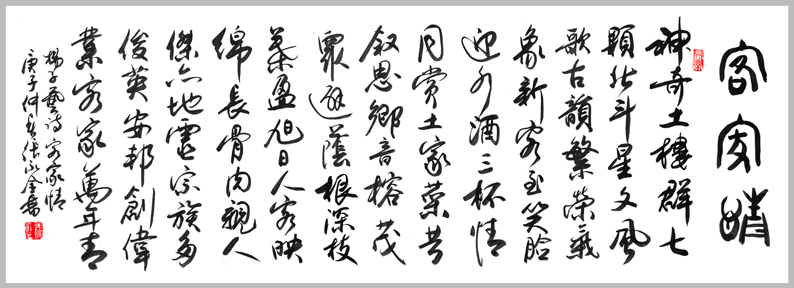 客家情
神奇土樓群七
顆北斗星文風
歌古韻繁榮氣
象新客至笑臉
迎酒三杯情
同賞土家菜共
叙思鄉音榕茂
眾蔭根深枝
葉盈旭日人映
綿長骨肉親人
傑地靈宗族多
俊英安邦創偉
業客家萬年青
楊子藝詩客家情
庚子仲春張永金書